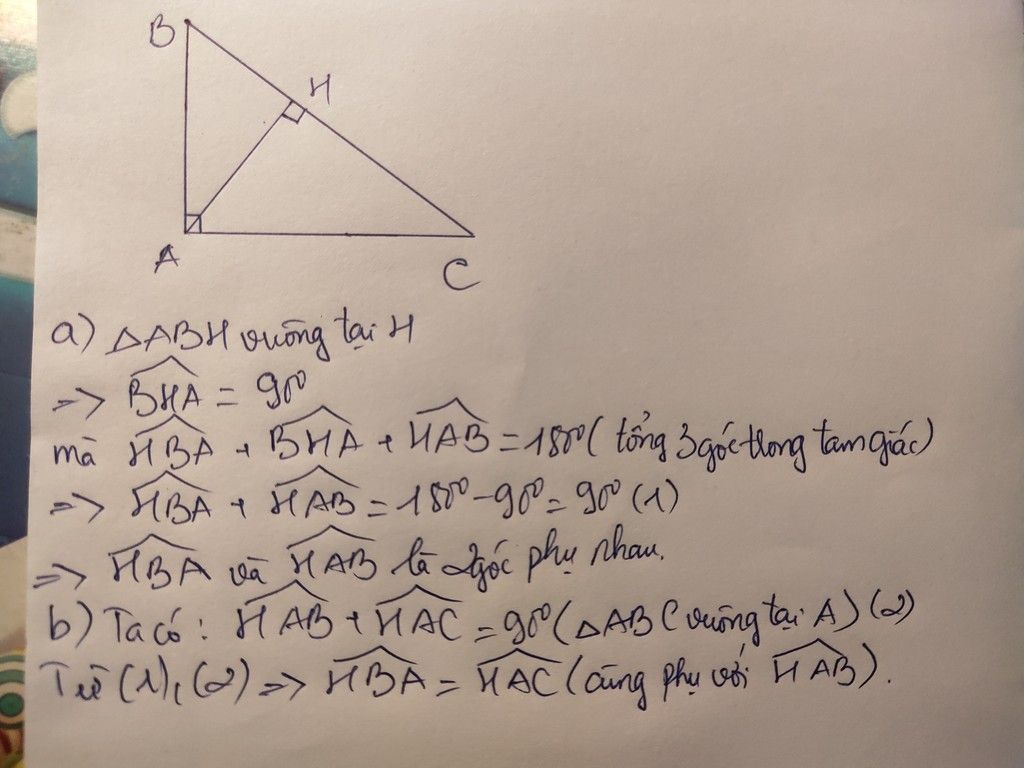 B
H
A
C
a) △ABH vuông tại H
=> \widehat{BHA} = 90°
mà \widehat{HBA} + \widehat{BHA} + \widehat{HAB} = 180° (tổng 3 góc trong tam giác)
=> \widehat{HBA} + \widehat{HAB} = 180° - 90° = 90° (1)
=> \widehat{HBA} và \widehat{HAB} là 2 góc phụ nhau.
b) Ta có: \widehat{HAB} + \widehat{HAC} = 90° (△ABC vuông tại A) (2)
Từ (1), (2) => \widehat{HBA} = \widehat{HAC} (cùng phụ với \widehat{HAB}).